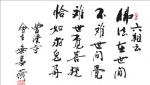 六祖云
佛法在世間
不離世間覺
離世覓菩提
恰如求兔角
曹溪寺